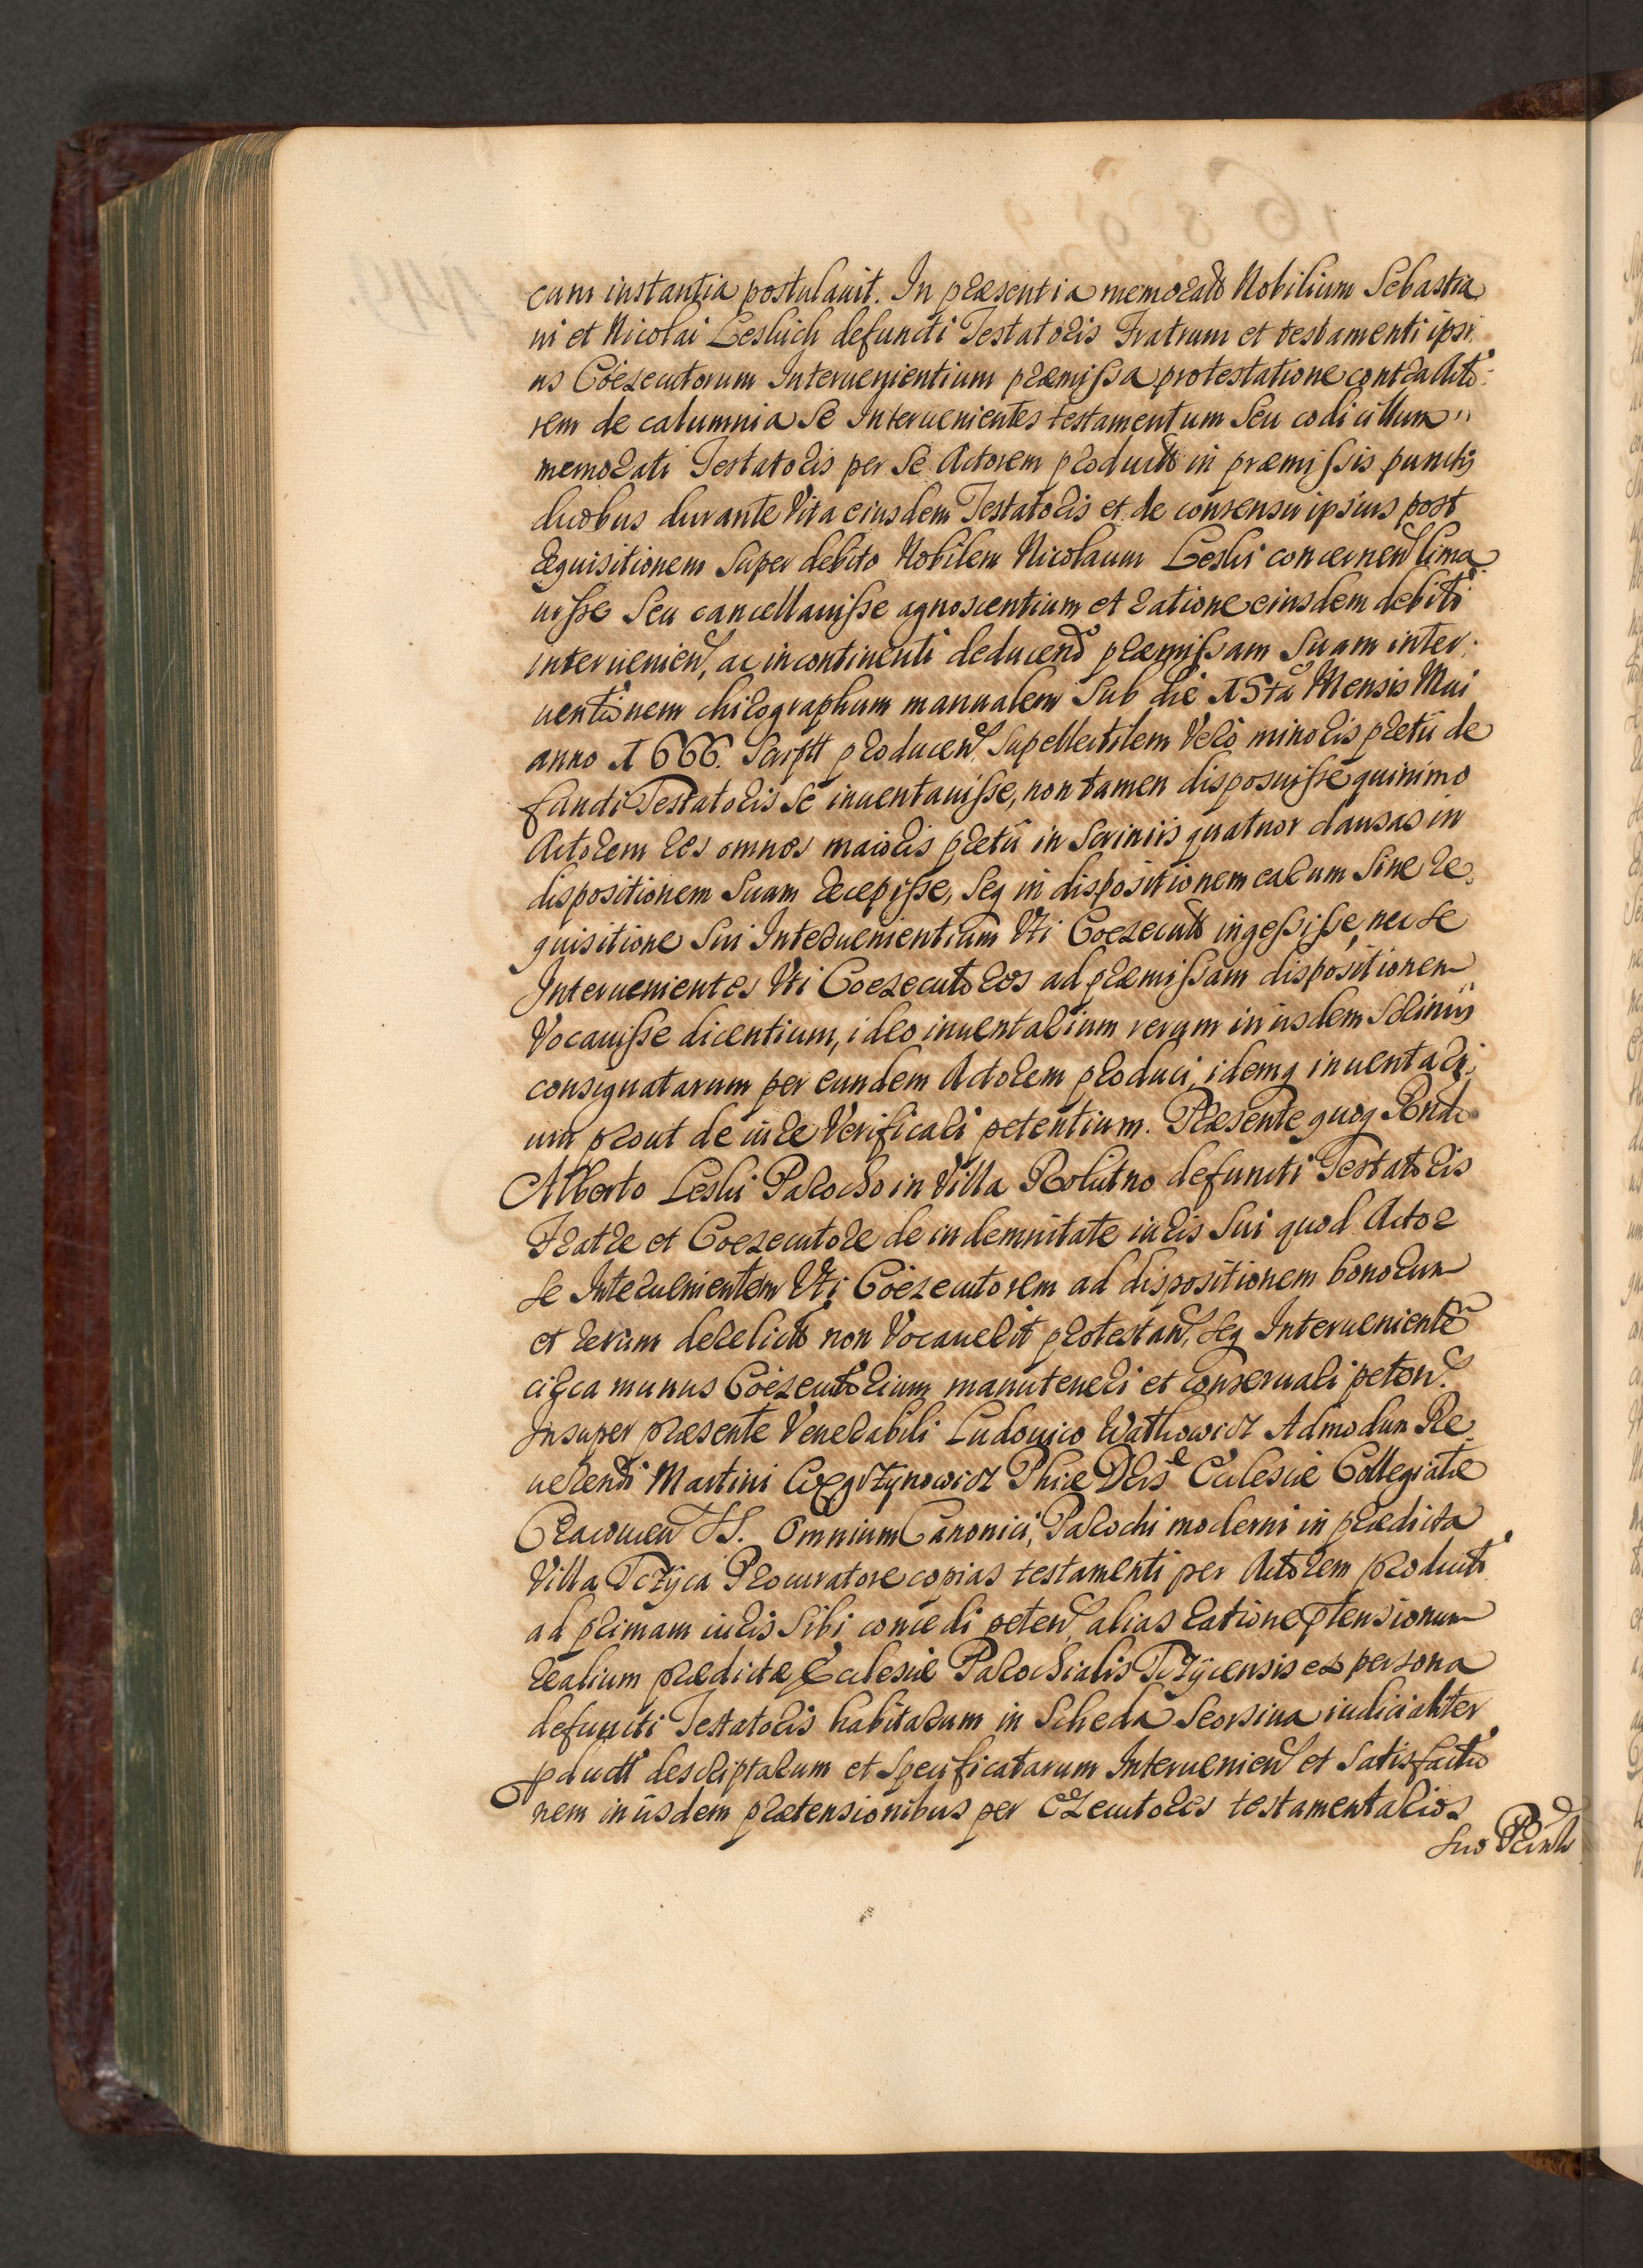 cum instantia postulauit. In præsentia memorato Nobilium Sebastia
ni et Nicolai Leskich defuncti Testatoris Fratrum et testamenti ipsi
us Coexecutorum Interuenientium præmissa protestatione contra Acto
rem de calumnia Se Interuenientes testamentum Seu codicillum
memorati Testatoris per Se Actorem producto in præmissis punctis
duobus durante Vita eiusdem Testatoris et de consensu ipsius post
requisitionem Super debito Nobilem Nicolaum Leski concernen lima
uisse Seu cancellauisse agnoscentium et ratione eiusdem debiti
interuenien, ac in continenti deducend præmissam Suam inter
uentionem chirographum manualem Sub die 15ta Mensis Mai
anno 1666. Script producen, Supellectilem Vero minoris pretii de
functi Testatoris Se inuentauisse, non tamen disposuisse quinimo
Actorem res omnes maioris pretii in Scriniis quatuor clausas in
dispositionem Suam recepisse, Seq in dispositionem earum Sine re
quisitione Sui Interuenientium Vti Coexecuto ingessisse, nec Se
Interuenientes Vti Coexecutores ad præmissam dispositionem
Vocauisse dicentium, ideo inuentarium rerum in iisdem Scriniis
consignatarum per eundem Actorem produci, idemq inuentari
um prout de iure Verificari petentium. Præsente quoq Rndo
Alberto Leski Parocho in Villa Rolutno defuncti Testatoris
Fratre et Coexecutore de indemnitate iuris Sui quod Actor
Se Interuenientem Vti Coexecutorem ad dispositionem bonorum
et rerum derelicto non Vocauerit protestan, Seq Interueniente
circa munus Coexecutorium manuteneri et conseruari peten.
Insuper præsente Venerabili Ludouico Wathowicz Admodum Re
uerendi Martini Węgrzynowicz Phiæ Dris Ecclesiæ Collegiatæ
Cracouien SS. Omnium Canonici, Parochi moderni in prædicta
Villa Tczyca Procuratore copias testamenti per Actorem producti
ad primam iuris Sibi concedi peten, alias ratione ptensionum
realium prædictæ Ecclesiæ Parochialis Tczycensis ex persona
defuncti Testatoris habitarum in Scheda Seorsiua iudicialiter
pducti descriptarum et Specificatarum Interuenien et Satisfactio
nem in iisdem prætensionibus per Executores testamentarios
Suo